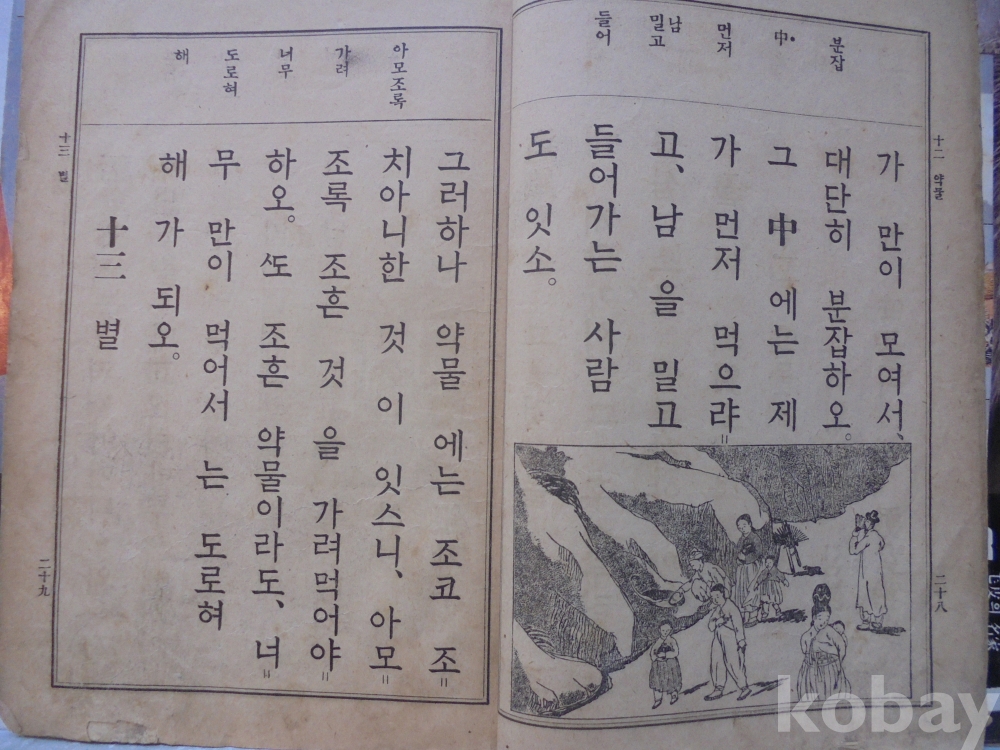 十二 약물
二十八
분잡
中•
먼저
남
밀고
들어
가 만이 모여서、
대단히 분잡하오。
그 中 에는 제
가 먼저 먹으랴=
고、남 을 밀고
들어가는 사람
도 잇소。
아모조록
가려
너무
도로혀
해
그러하나 약물 에는 조코 조=
치아니한 것 이 잇스니、아모=
조록 조흔 것 을 가려먹어야=
하오。ᄯᅩ 조흔 약물이라도、너=
무 만이 먹어서 는 도로혀
해 가 되오。
十三 별
十三 별
二十九
kobay